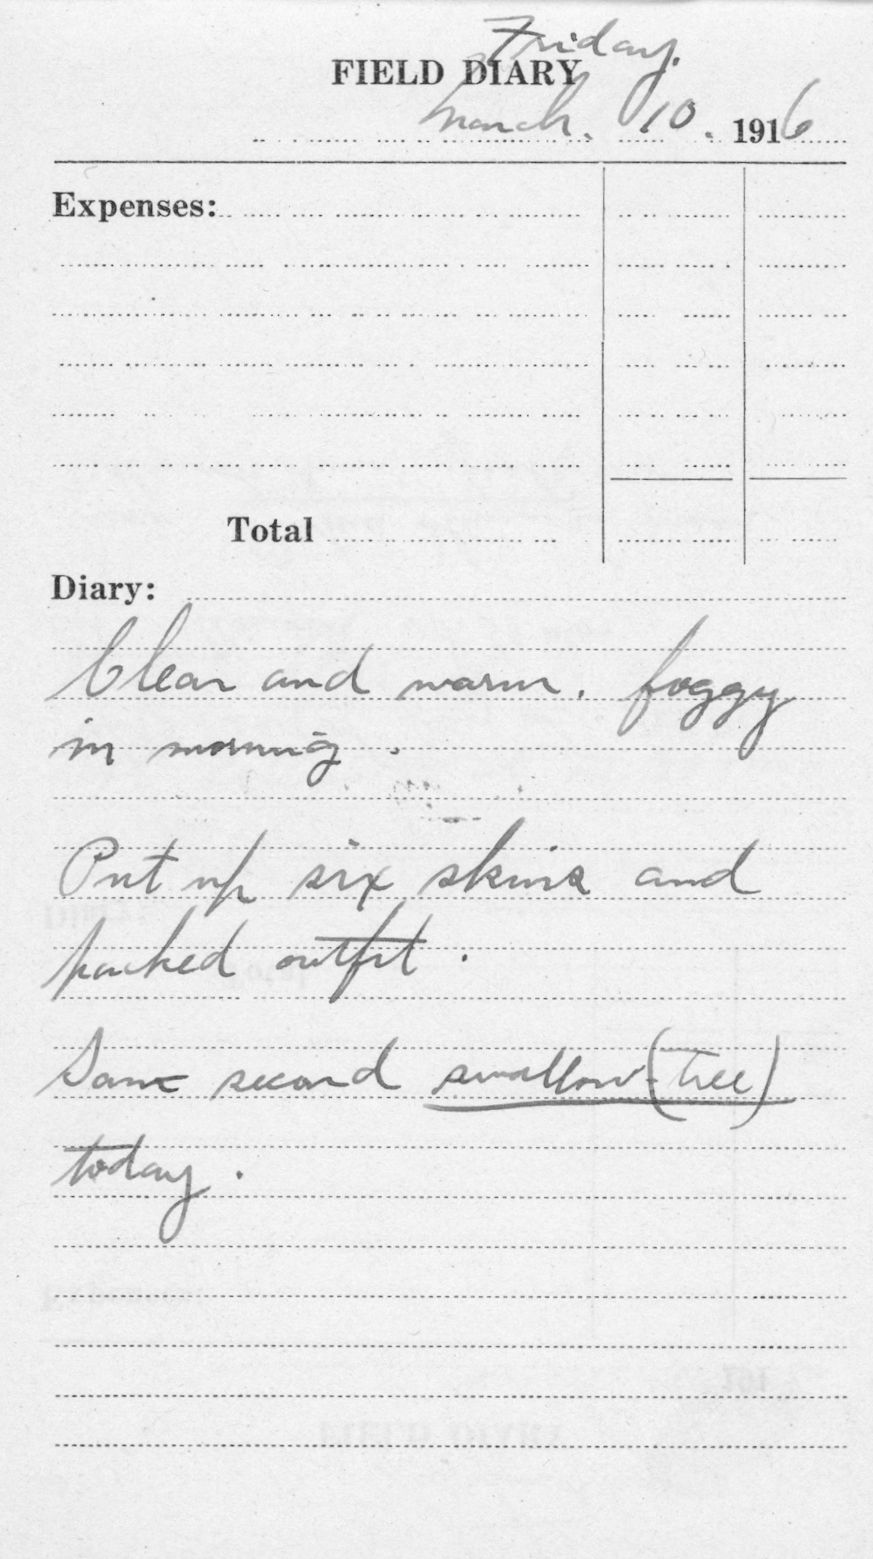 Friday.
FIELD DIARY
March. 10. 1916
Expenses:
Total
Diary:
Clear and warm. foggy
in morning.
Put up six skins and
packed outfit.
Saw second swallow-(Tree)
today.